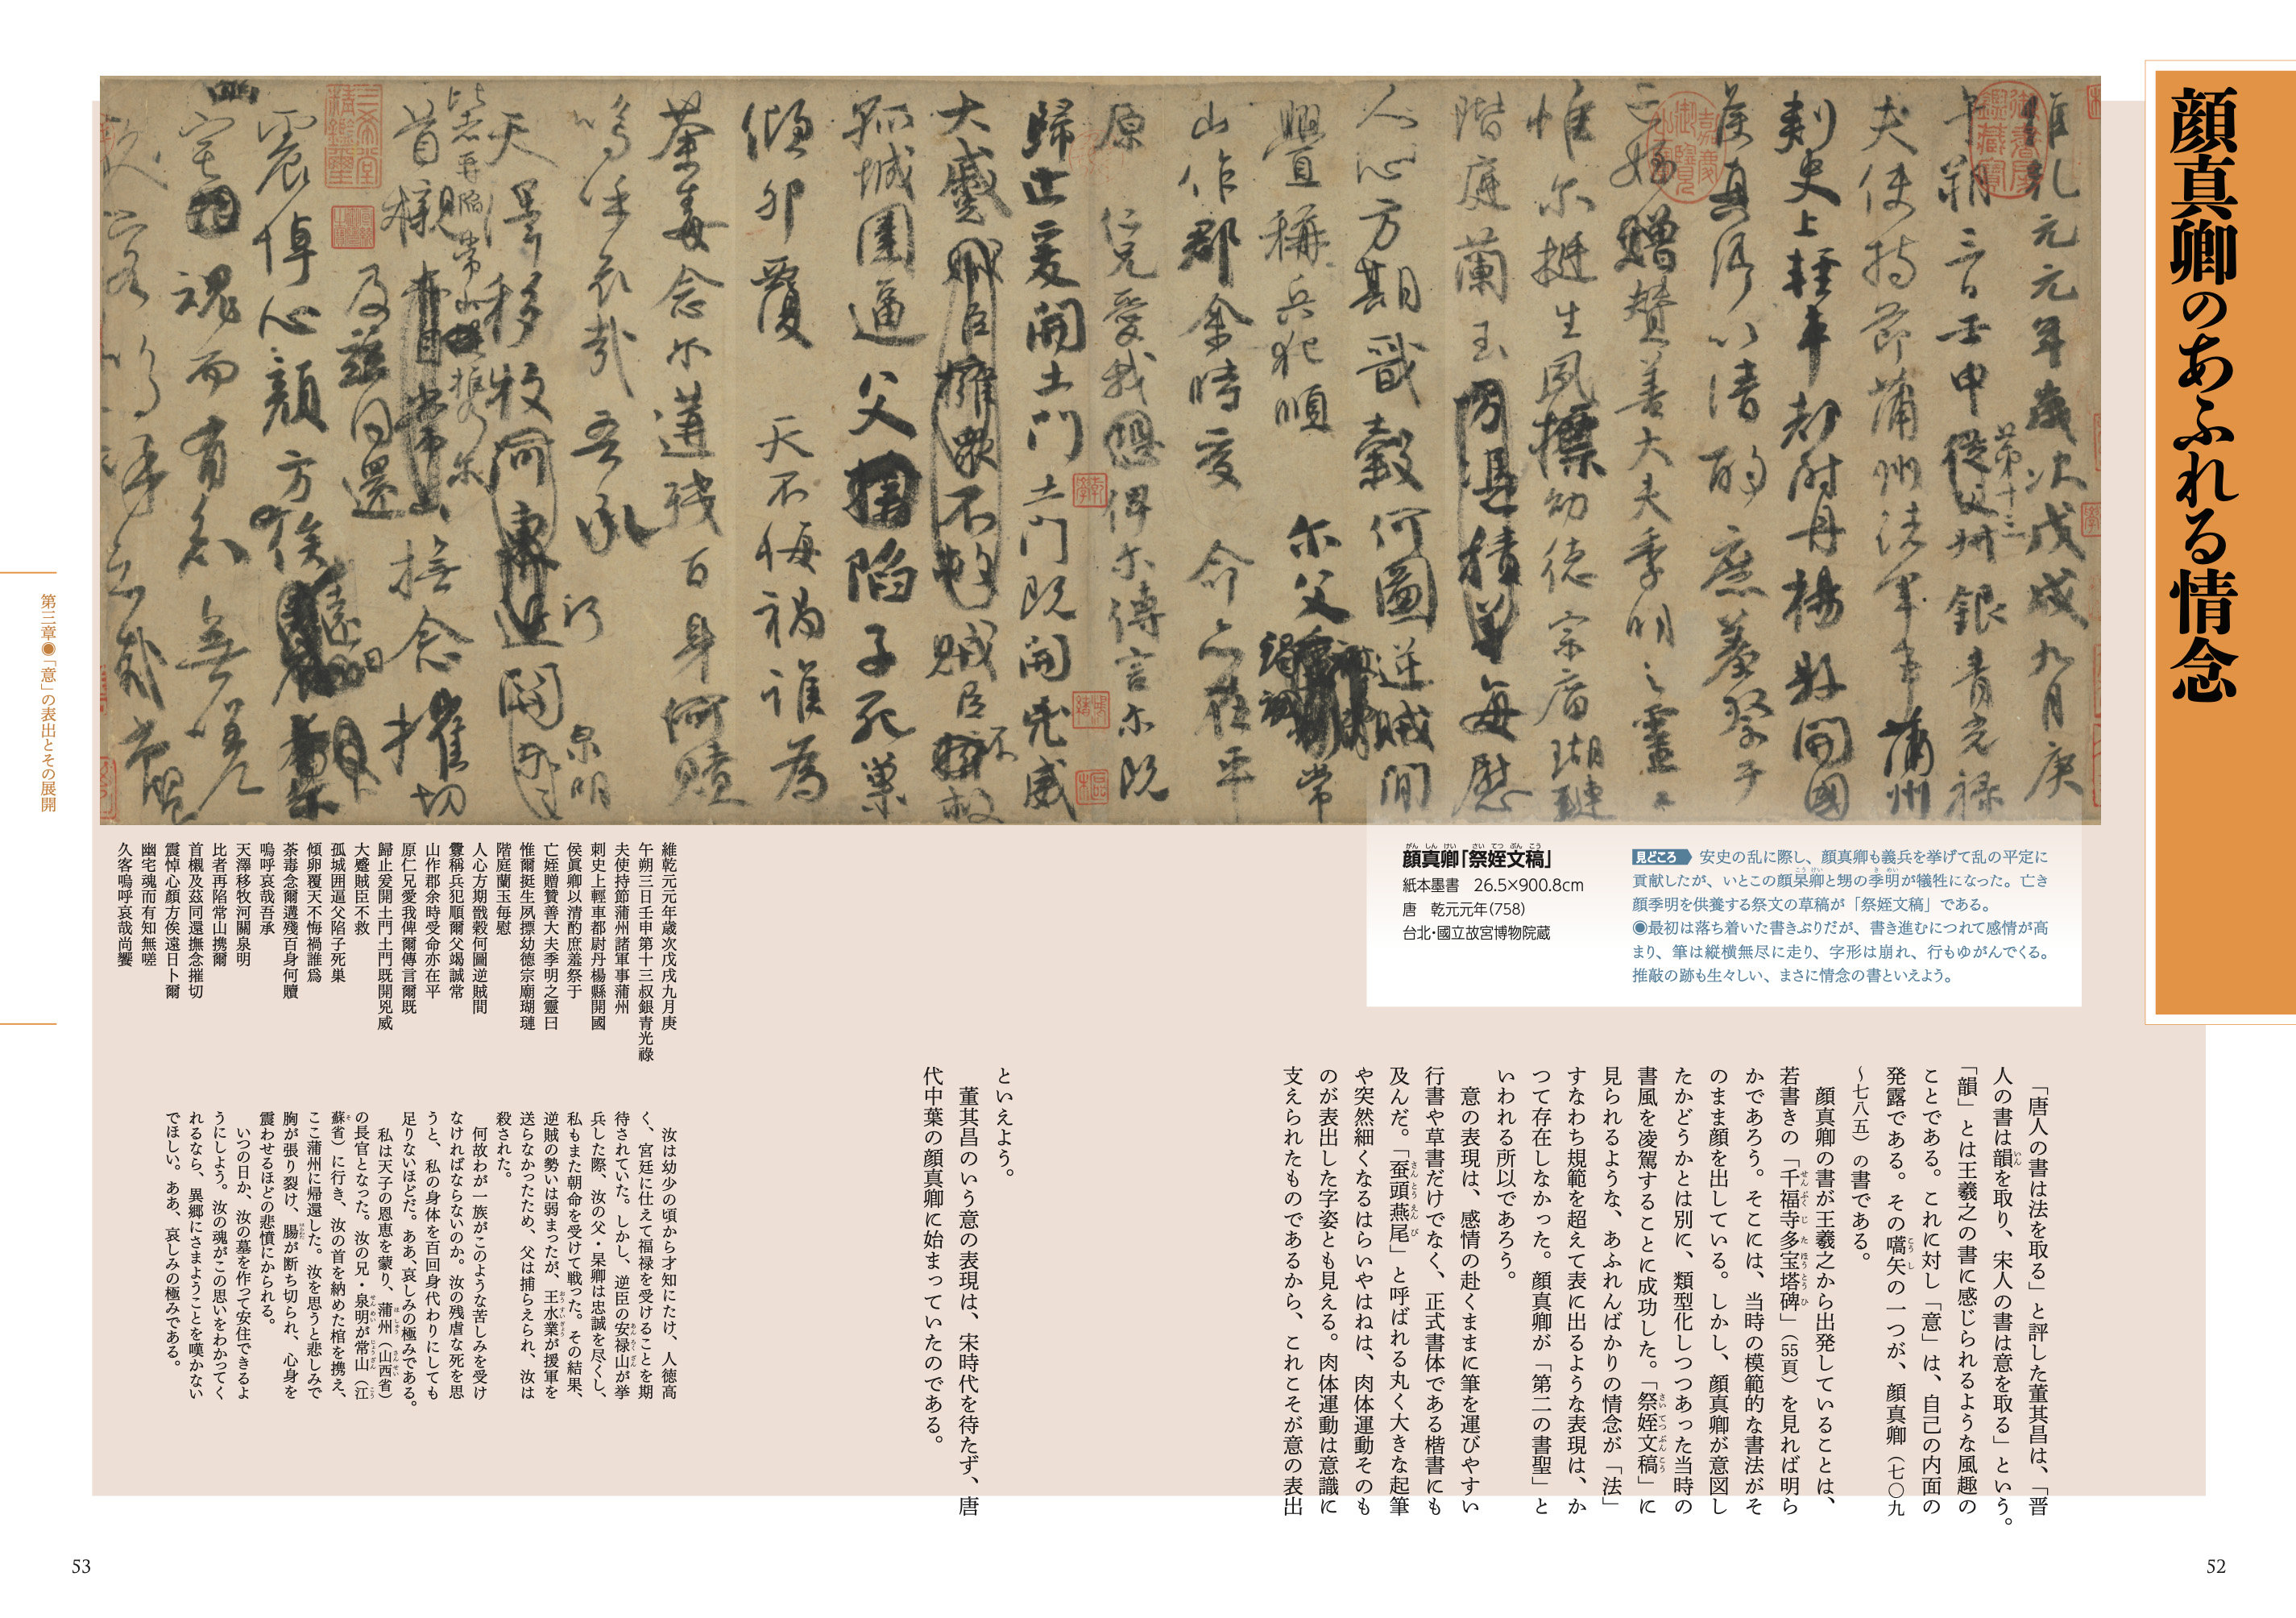 顔真卿のあふれる情念
顔真卿「祭姪文稿」
紙本墨書　26.5×900.8cm
唐　乾元元年(758)
台北・國立故宮博物院蔵
見どころ　安史の乱に際し、顔真卿も義兵を挙げて乱の平定に
貢献したが、いとこの顔杲卿と甥の季明が犠牲になった。亡き
顔季明を供養する祭文の草稿が「祭姪文稿」である。
◉最初は落ち着いた書きぶりだが、書き進むにつれて感情が高
まり、筆は縦横無尽に走り、字形は崩れ、行もゆがんでくる。
推敲の跡も生々しい、まさに情念の書といえよう。
「唐人の書は法を取る」と評した董其昌は、「晋
人の書は韻を取り、宋人の書は意を取る」という。
「韻」とは王羲之の書に感じられるような風趣の
ことである。これに対し「意」は、自己の内面の
発露である。その嚆矢の一つが、顔真卿（七〇九
～七八五）の書である。
顔真卿の書が王羲之から出発していることは、
若書きの「千福寺多宝塔碑」（55頁）を見れば明ら
かであろう。そこには、当時の模範的な書法がそ
のまま顔を出している。しかし、顔真卿が意図し
たかどうかとは別に、類型化しつつあった当時の
書風を凌駕することに成功した。「祭姪文稿」に
見られるような、あふれんばかりの情念が「法」
すなわち規範を超えて表に出るような表現は、か
つて存在しなかった。顔真卿が「第二の書聖」と
いわれる所以であろう。
意の表現は、感情の赴くままに筆を運びやすい
行書や草書だけでなく、正式書体である楷書にも
及んだ。「蚕頭燕尾」と呼ばれる丸く大きな起筆
や突然細くなるはらいやはねは、肉体運動そのも
のが表出した字姿とも見える。肉体運動は意識に
支えられたものであるから、これこそが意の表出
といえよう。
董其昌のいう意の表現は、宋時代を待たず、唐
代中葉の顔真卿に始まっていたのである。
維乾元元年歳次戊戌九月庚
午朔三日壬申第十三叔銀青光祿
夫使持節蒲州諸軍事蒲州
刺史上輕車都尉丹楊縣開國
侯眞卿以清酌庶羞祭于
亡姪贈贊善大夫季明之靈曰
惟爾挺生夙摽幼德宗廟瑚璉
階庭蘭玉毎慰
人心方期戩穀何圖逆賊間
釁稱兵犯順爾父竭誠常
山作郡余時受命亦在平
原仁兄愛我俾爾傳言爾既
歸止爰開土門土門既開兇威
大蹙賊臣不救
孤城囲逼父陷子死巣
傾卵覆天不悔禍誰爲
荼毒念爾遘殘百身何贖
嗚呼哀哉吾承
天澤移牧河關泉明
比者再陷常山携爾
首櫬及茲同還撫念摧切
震悼心顏方俟遠日卜爾
幽宅魂而有知無嗟
久客嗚呼哀哉尚饗
汝は幼少の頃から才知にたけ、人徳高
く、宮廷に仕えて福禄を受けることを期
待されていた。しかし、逆臣の安禄山が挙
兵した際、汝の父・杲卿は忠誠を尽くし、
私もまた朝命を受けて戦った。その結果、
逆賊の勢いは弱まったが、王水業が援軍を
送らなかったため、父は捕らえられ、汝は
殺された。
何故わが一族がこのような苦しみを受け
なければならないのか。汝の残虐な死を思
うと、私の身体を百回身代わりにしても
足りないほどだ。ああ、哀しみの極みである。
私は天子の恩恵を蒙り、蒲州（山西省）
の長官となった。汝の兄・泉明が常山（江
蘇省）に行き、汝の首を納めた棺を携え、
ここ蒲州に帰還した。汝を思うと悲しみで
胸が張り裂け、腸が断ち切られ、心身を
震わせるほどの悲憤にかられる。
いつの日か、汝の墓を作って安住できるよ
うにしよう。汝の魂がこの思いをわかってく
れるなら、異郷にさまようことを嘆かない
でほしい。ああ、哀しみの極みである。
第三章◉「意」の表出とその展開
53
52